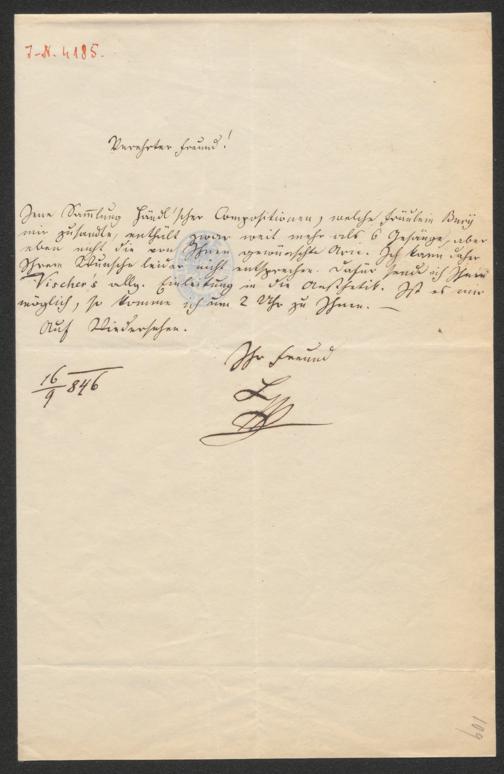 J-N. 4185.
Verehrter Freund!
Jene Sammlung Händl'scher Compositionen, welche Fräulein Bury
mir zusandte, enthält zwar weit mehr als 6 Gesänge, aber
eben nicht die von Ihnen gewünschte Arie. Ich kann daher
Ihrem Wunsche leider nicht entsprechen. Dafür send ich Ihnen
Vischer's allg. Einleitung in die Aesthetik. Ist es mir
möglich, so komme ich um 2 Uhr zu Ihnen. —
Auf Wiedersehen.
Ihr Freund
16/9 846
109